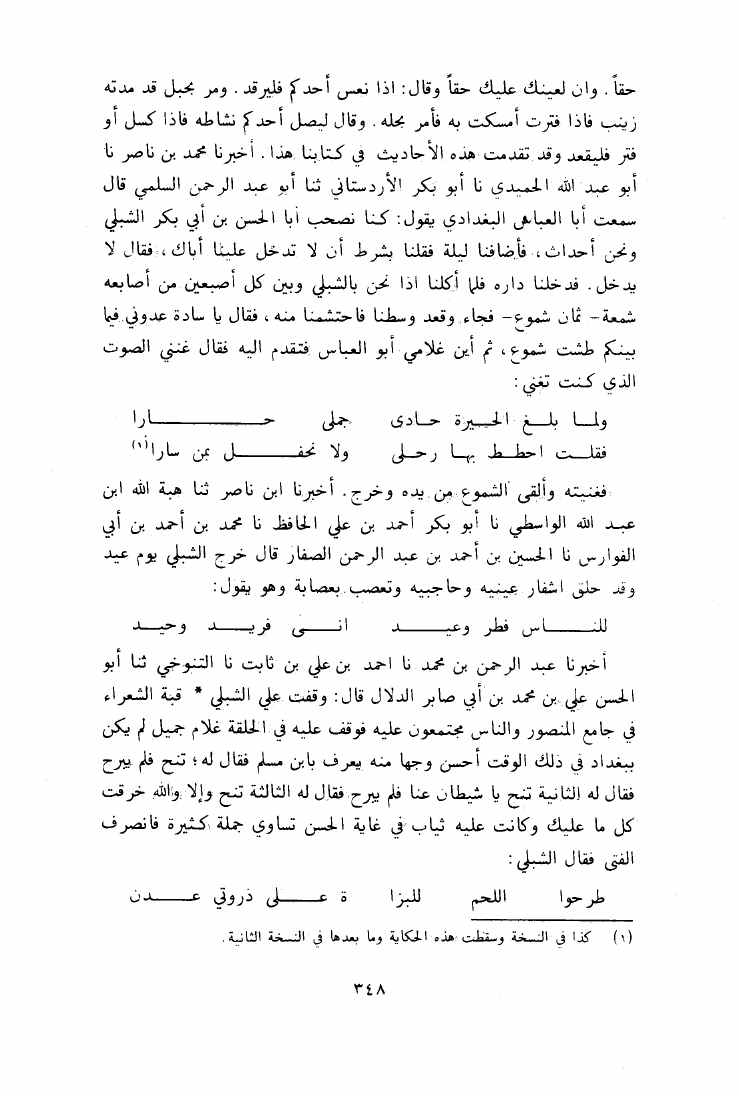 حقاً. وان لعينك عليك حقاً وقال: اذا نعس أحدكم فليرقد. ومر بحبل قد مدته
زينب فاذا فترت أمسكت به فأمر بحله. وقال ليصل أحدكم نشاطه فاذا كسل أو
فتر فليقعد وقد تقدمت هذه الأحاديث في كتابنا هذا. أخبرنا محمد بن ناصر نا
أبو عبد الله الحميدي نا أبو بكر الأردستاني ثنا أبو عبد الرحمن السلمي قال
سمعت أبا العباس البغدادي يقول: كنا نصحب أبا الحسن بن أبي بكر الشبلي
ونحن أحداث، فأضافنا ليلة فقلنا بشرط أن لا تدخل علينا أباك، فقال لا
يدخل. فدخلنا داره فلما أكلنا اذا نحن بالشبلي وبين كل أصبعين من أصابعه
شمعة - ثمان شموع - فجاء وقعد وسطنا فاحتشمنا منه، فقال يا سادة عدوني فيما
بينكم طشت شموع، ثم أين غلامي أبو العباس فتقدم اليه فقال غنني الصوت
الذي كنت تغني:
ولما بلغ الحيرة حادى جملى حارا
فقلت احطط بها رحلى ولا نحفل بمن سارا (١)
فغنيته وألقى الشموع من يده وخرج. أخبرنا ابن ناصر ثنا هبة الله ابن
عبد الله الواسطي نا أبو بكر أحمد بن علي الحافظ نا محمد بن أحمد بن أبي
الفوارس نا الحسين بن أحمد بن عبد الرحمن الصفار قال خرج الشبلي يوم عيد
وقد حلق اشفار عينيه وحاجبيه وتعصب بعصابة وهو يقول:
للناس فطر وعيد انى فريد وحيد
أخبرنا عبد الرحمن بن محمد نا احمد بن علي بن ثابت نا التنوخي ثنا أبو
الحسن علي بن محمد بن أبي صابر الدلال قال: وقفت علي الشبلي * قبة الشعراء
في جامع المنصور والناس مجتمعون عليه فوقف عليه في الحلقة غلام جميل لم يكن
ببغداد في ذلك الوقت أحسن وجها منه يعرف بابن مسلم فقال له؛ تنح فلم يبرح
فقال له الثانية تنح يا شيطان عنا فلم يبرح فقال له الثالثة تنح وإلا والله خرقت
كل ما عليك وكانت عليه ثياب في غاية الحسن تساوي جملة كثيرة فانصرف
الفتى فقال الشبلي:
طرحوا اللحم للبزا ة على ذروتي عدن
(١) كذا في النسخة وسقطت هذه الحكاية وما بعدها في النسخة الثانية.
٣٤٨